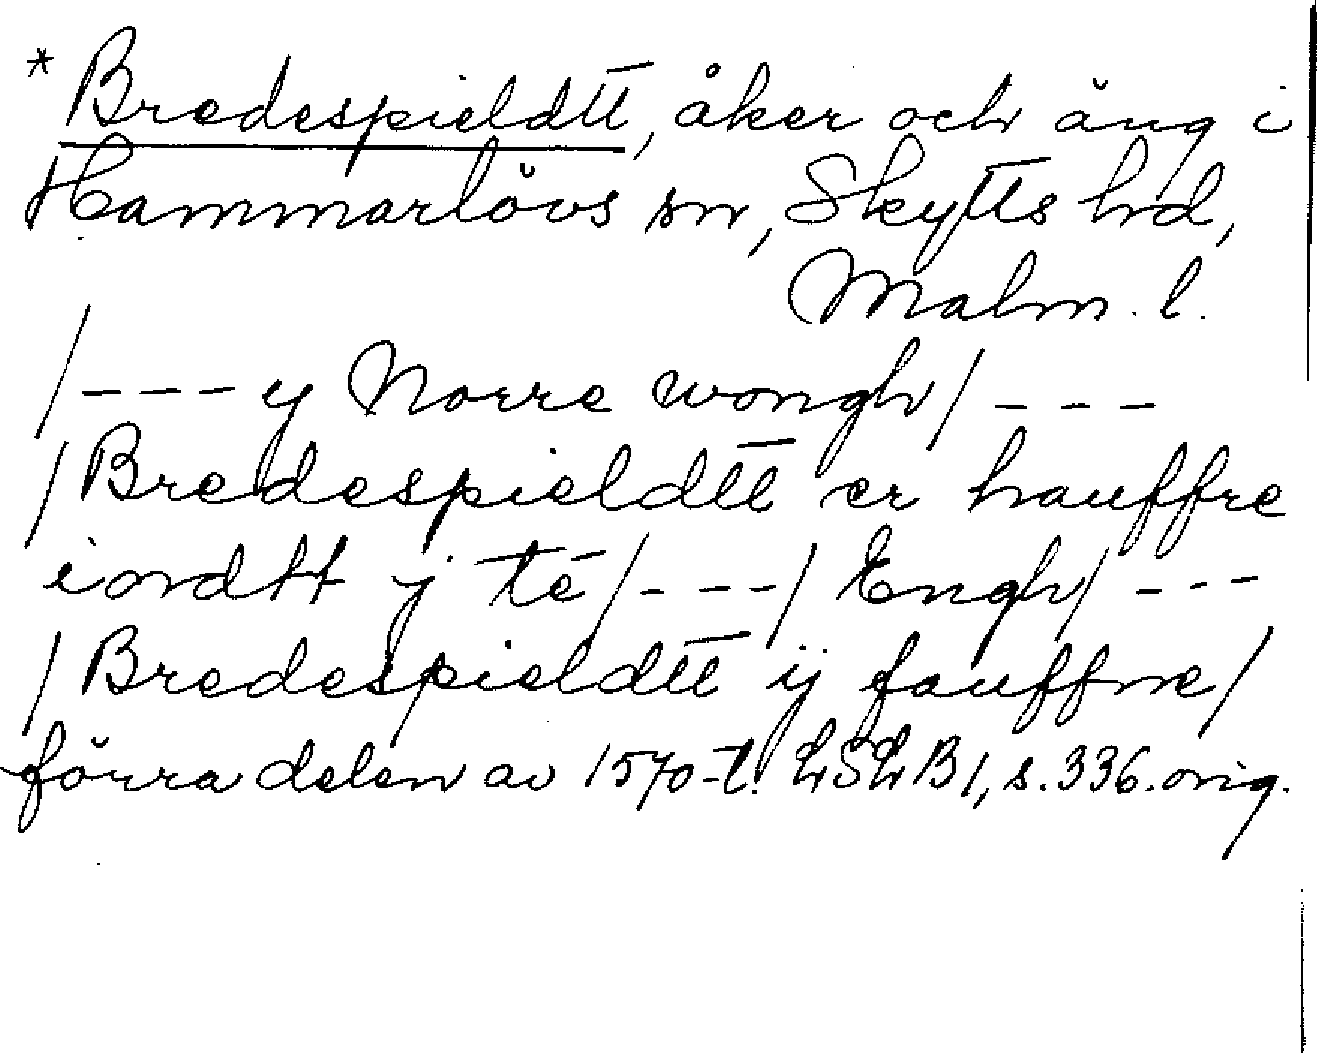 * Bredespieldtt, åker och äng i
Hammarlövs sn, Skytts hd,
Malm. l.
/--- y Norre wongh/ ---
/Bredespieldtt er hauffre
iordtt j té/---/Engh/---
/Bredespieldtt ÿ fauffne/
förra delen av 1570-t. LSLB1, s. 336. orig.